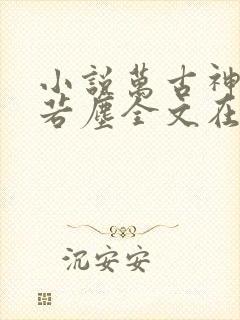 小說萬古神
若塵全文在
沉安安